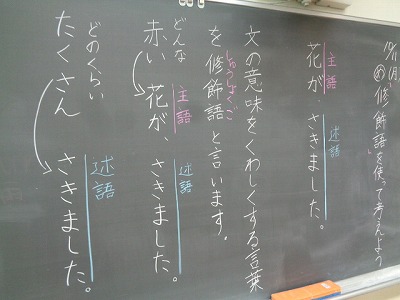 10/11(月)
め「修飾語」を使って考えよう
主語 述語
花が、さきました。
文の意味をくわしくする言葉
しゅうしょくご
を修飾語と言います。
どんな 主語 述語
赤い 花が、さきました。
どのくらい 述語
たくさん さきました。